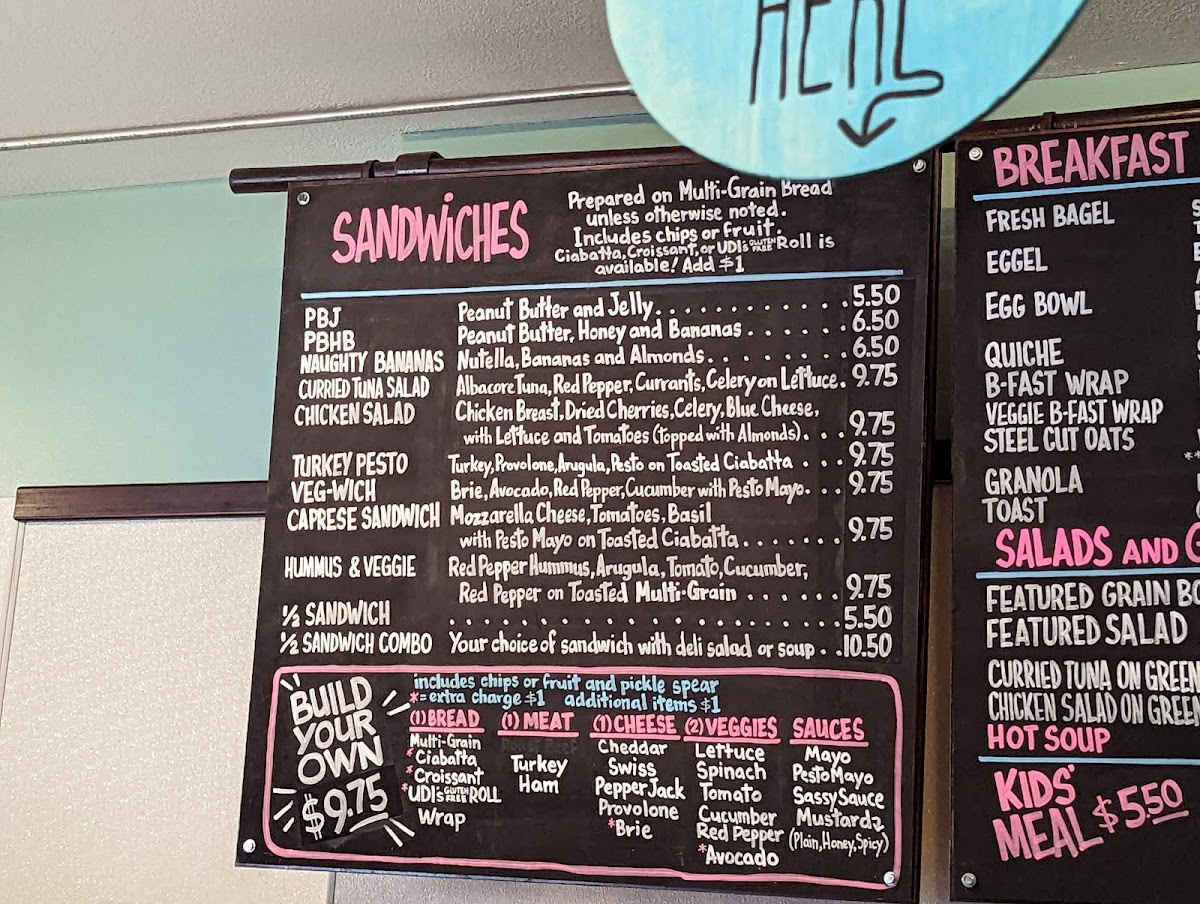 HERE
SANDWiCHES
Prepared on Multi-Grain Bread
unless otherwise noted.
Includes chips or fruit.
Ciabatta, Croissant, or UDI's GLUTEN FREE Roll is
available! Add $1
PBJ Peanut Butter and Jelly. . . . . . . . . . 5.50
PBHB Peanut Butter, Honey and Bananas . . . . . . 6.50
NAUGHTY BANANAS Nutella, Bananas and Almonds. . . . . . . . 6.50
CURRIED TUNA SALAD Albacore Tuna, Red Pepper, Currants, Celery on Lettuce. 9.75
CHICKEN SALAD Chicken Breast, Dried Cherries, Celery, Blue Cheese,
with Lettuce and Tomatoes (topped with Almonds). . . 9.75
TURKEY PESTO Turkey, Provolone, Arugula, Pesto on Toasted Ciabatta . . . 9.75
VEG-WICH Brie, Avocado, Red Pepper, Cucumber with Pesto Mayo. . . 9.75
CAPRESE SANDWICH Mozzarella Cheese, Tomatoes, Basil
with Pesto Mayo on Toasted Ciabatta. . . . . . . 9.75
HUMMUS & VEGGIE Red Pepper Hummus, Arugula, Tomato, Cucumber,
Red Pepper on Toasted Multi-Grain . . . . . . 9.75
½ SANDWICH . . . . . . . . . . . . . . . . . . . . 5.50
½ SANDWICH COMBO Your choice of sandwich with deli salad or soup . . 10.50
BUILD
YOUR
OWN
$9.75
includes chips or fruit and pickle spear
*= extra charge $1 additional items $1
(1) BREAD
Multi-Grain
*Ciabatta
*Croissant
*UDI's GLUTEN FREE ROLL
Wrap
(1) MEAT
Roast Beef
Turkey
Ham
(1) CHEESE
Cheddar
Swiss
Pepper Jack
Provolone
*Brie
(2) VEGGIES
Lettuce
Spinach
Tomato
Cucumber
Red Pepper
*Avocado
SAUCES
Mayo
Pesto Mayo
Sassy Sauce
Mustardz
(Plain, Honey, Spicy)
BREAKFAST
FRESH BAGEL
EGGEL
EGG BOWL
QUICHE
B-FAST WRAP
VEGGIE B-FAST WRAP
STEEL CUT OATS
GRANOLA
TOAST
SALADS AND
FEATURED GRAIN
FEATURED SALAD
CURRIED TUNA ON GREEN
CHICKEN SALAD ON GREEN
HOT SOUP
KIDS'
MEAL $5.50